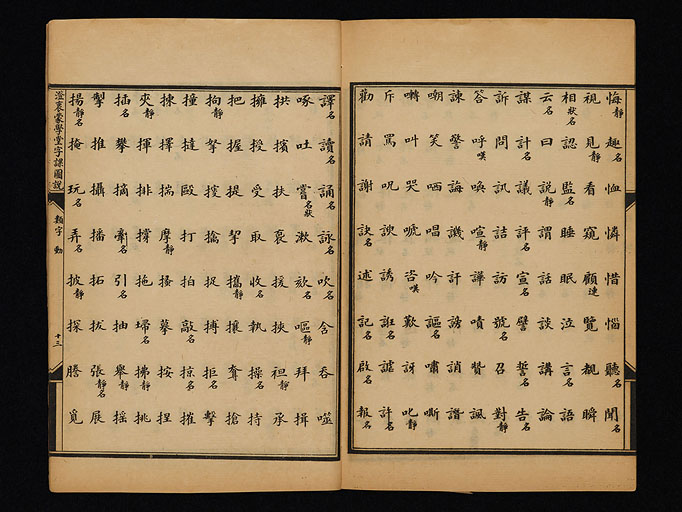 悔靜趣名恤憐惜惱聽名聞名
視見靜看窺顧連覽覩瞬
相狀名認監名睡眠泣言名語
云名曰說靜謂話談講論
謀名計名議評名宣名譬誓名告名
訴問訊詰訪號名召對靜
答呼嘆喚喧靜譁嘖贊諷
諫警誨譏訐謗誚譖
嘲笑哂唱吟謳名嘯嘶
囀叫哭唬咨嘆歎訝叱靜
斥罵呪諛誘誑名謔許名
勸請謝訣名述記名啟名報名
譯名讀名誦名詠名吹名含吞噬
啄吐嘗名狀漱欬名嘔靜拜揖
拱擯扶裒援挾袒靜承
擁授受取收名執操名持
把握提挈攜靜攘聳搶
拘靜拏搜擒捉搏拒名擊
撞撻毆打拍敲名掠名摧
揀擇揣摩靜搔摹按捏
夾靜揮排撐拖埽名拂靜挑
插名攀摘牽名引名抽舉靜搖
掣推攝播拓拔張靜名展
揚靜名掩玩名弄名披靜探謄覓
澄衷蒙學堂字課圖說
類字 動
十三